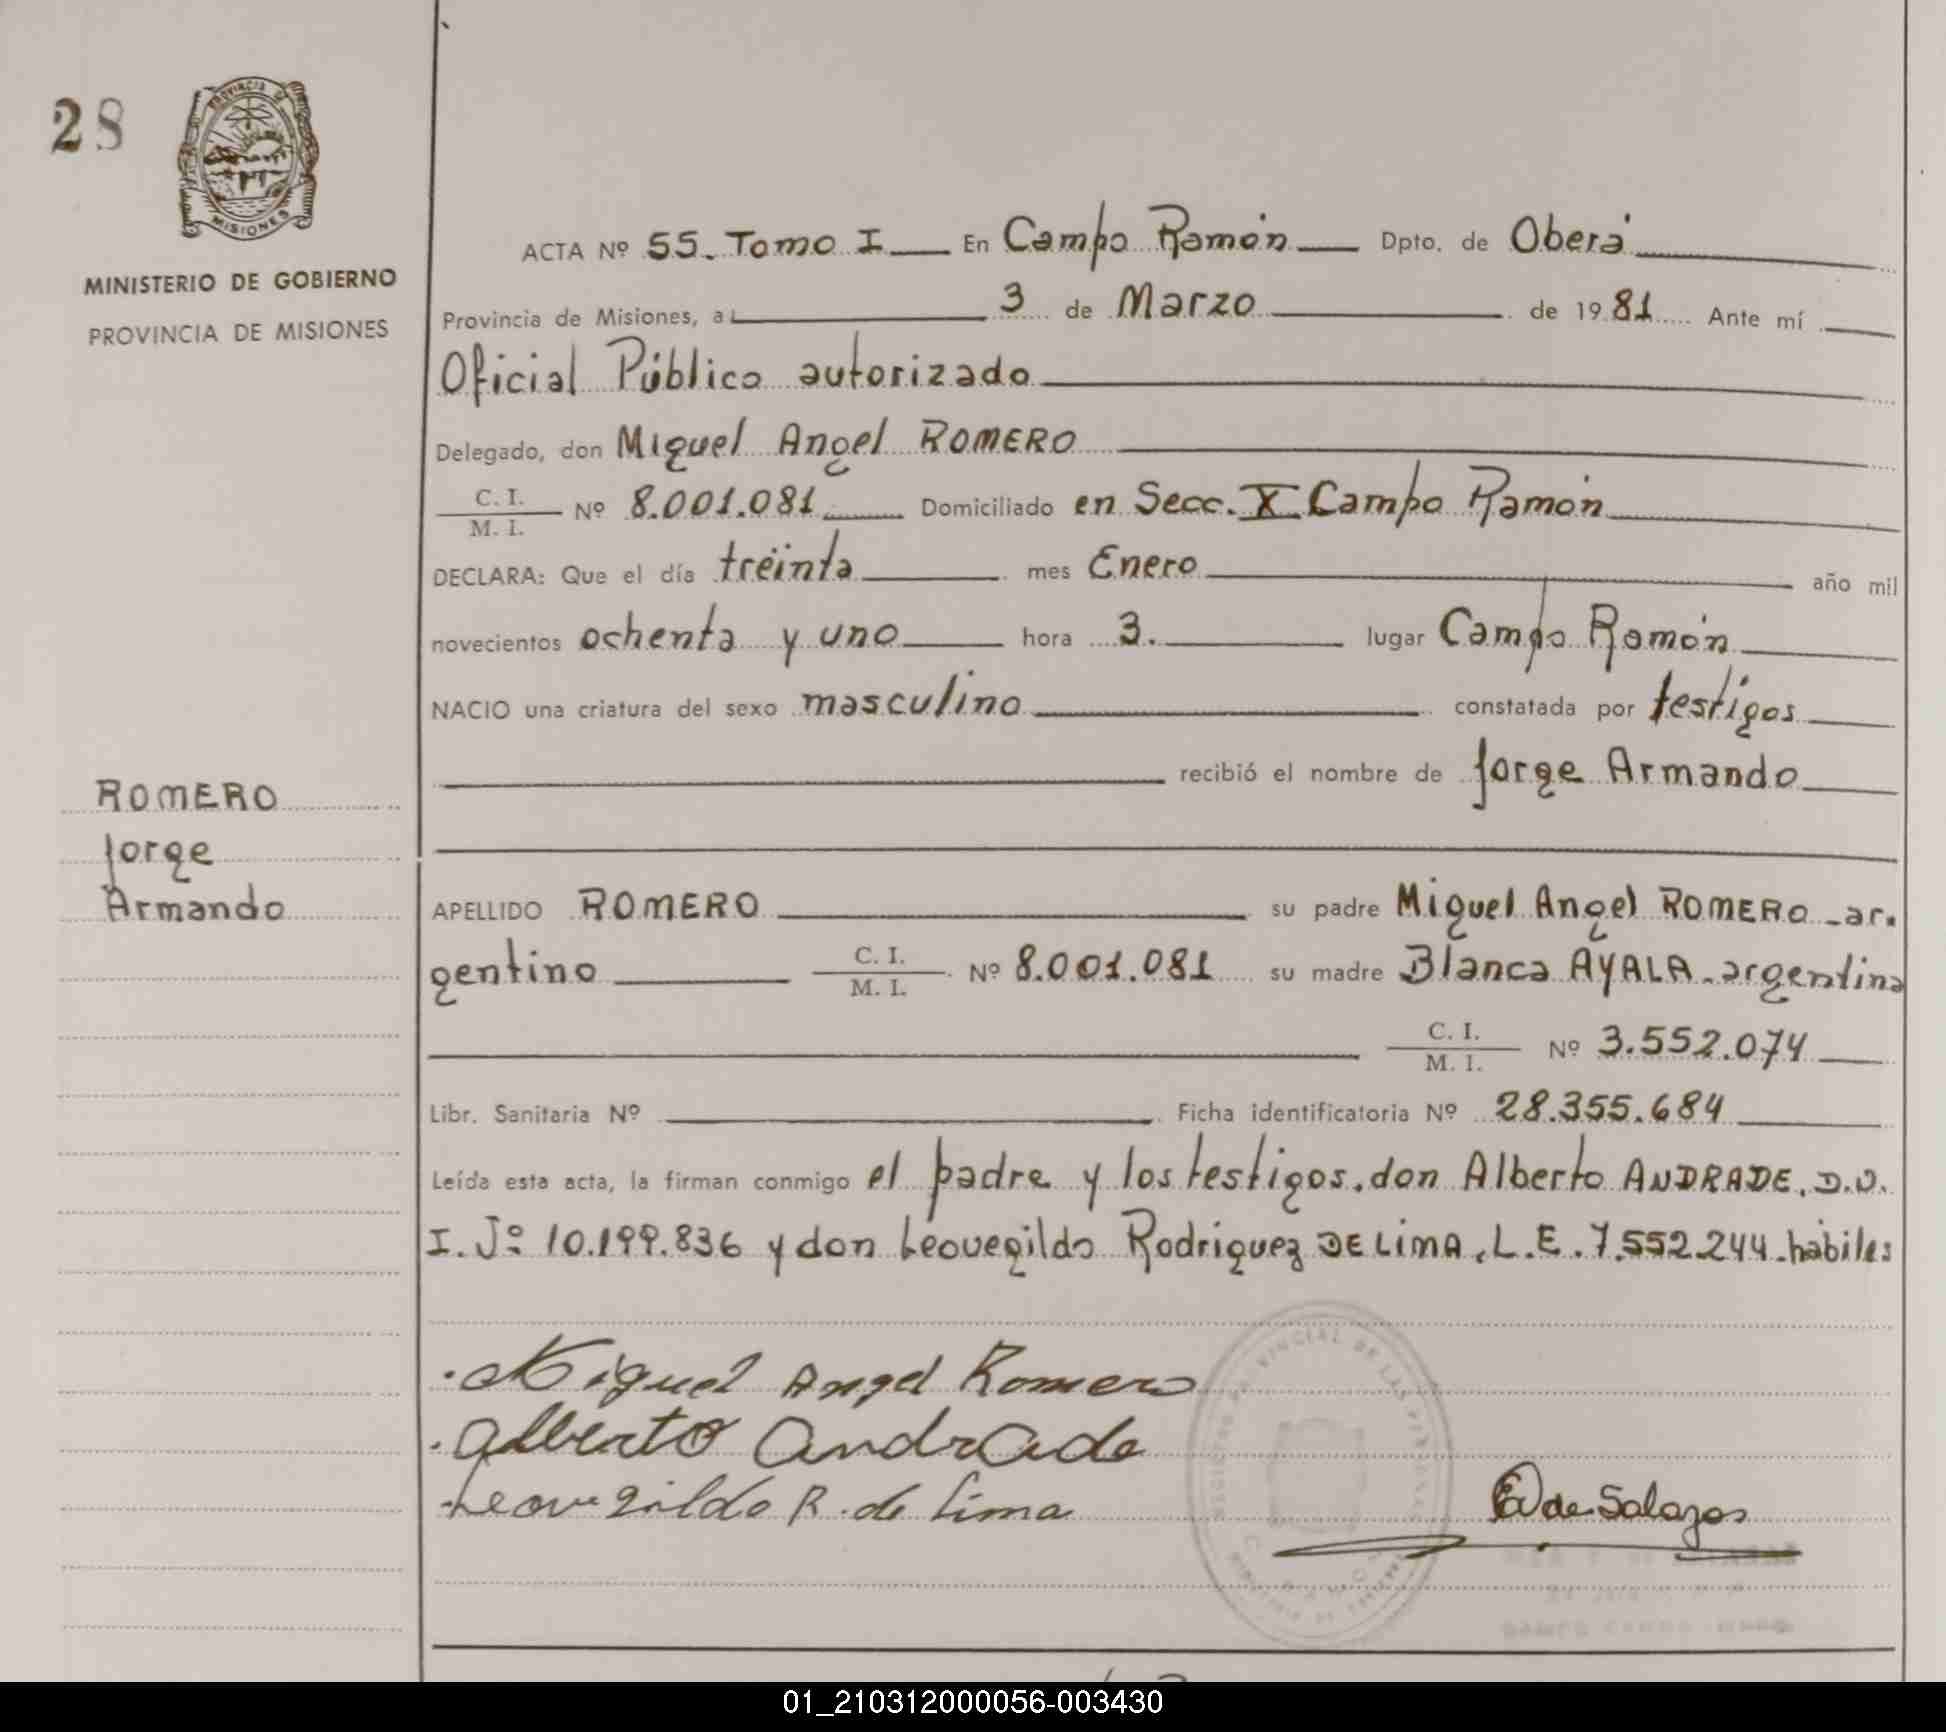 28
PROVINCIA DE
MISIONES
MINISTERIO DE GOBIERNO
PROVINCIA DE MISIONES
ACTA Nº 55. Tomo I En Campo Ramón Dpto. de Oberá
Provincia de Misiones, a 3 de Marzo de 19 81 Ante mí
Oficial Público autorizado
Delegado, don Miguel Angel ROMERO
C. I. / M. I. Nº 8.001.081 Domiciliado en Secc. X Campo Ramón
DECLARA: Que el día treinta mes Enero año mil
novecientos ochenta y uno hora 3. lugar Campo Ramón
NACIO una criatura del sexo masculino constatada por testigos
recibió el nombre de Jorge Armando
ROMERO
Jorge
Armando
APELLIDO ROMERO su padre Miguel Angel ROMERO - ar.
gentino C. I. / M. I. Nº 8.001.081 su madre Blanca AYALA - argentina
C. I. / M. I. Nº 3.552.074
Libr. Sanitaria Nº Ficha identificatoria Nº 28.355.684
Leída esta acta, la firman conmigo el padre y los testigos, don Alberto ANDRADE, D.N.
I. Nº 10.199.836 y don Leovegildo Rodriguez DE LIMA, L.E. 7.552.244 - hábiles
Miguel Angel Romero
Alberto Andrade
Leovegildo R. de Lima
REGISTRO PROVINCIAL DE LAS PERSONAS
de Salazar
01_210312000056-003430